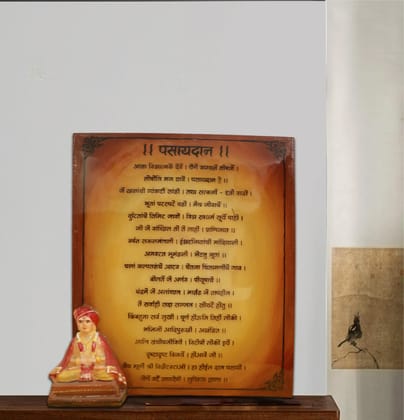 ।। पसायदान ।।
आता विश्वात्मकें देवें । येणें वाग्यज्ञें तोषावें ।
तोषोनि मज द्यावें । पसायदान हें ।।
जें खळांची व्यंकटी सांडो । तया सत्कर्मी - रती वाढो ।
भूतां परस्परें पडो । मैत्र जीवाचें ।।
दुरितांचें तिमिर जावो । विश्व स्वधर्म सूर्यें पाहो ।
जो जें वांच्छिल तो तें लाहो । प्राणिजात ।।
वर्षत सकळमंगळीं । ईश्वरनिष्ठांची मांदियाळी ।
अनवरत भूमंडळीं । भेटतु भूतां ।।
चलां कल्पतरूंचे आरव । चेतना चिंतामणीचें गाव ।
बोलते जे अर्णव । पीयूषाचे ।।
चंद्रमें जे अलांछन । मार्तंड जे तापहीन ।
ते सर्वांही सदा सज्जन । सोयरे होतु ।
किंबहुना सर्व सुखी । पूर्ण होऊनि तिहीं लोकीं ।
भजिजो आदिपुरुखीं । अखंडित ।।
ग्रंथोपजीविये । विशेषीं लोकीं इयें ।
दृष्टादृष्ट विजयें । होआवें जी ।